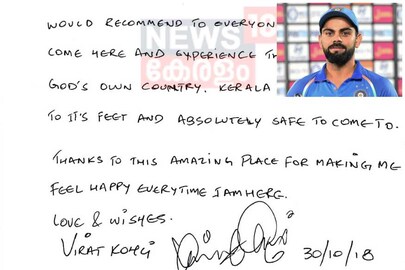 WOULD RECOMMEND TO EVERYON
COME HERE AND EXPERIENCE TH
GOD'S OWN COUNTRY. KERALA
TO IT'S FEET AND ABSOLUTELY SAFE TO COME TO.
THANKS TO THIS AMAZING PLACE FOR MAKING ME
FEEL HAPPY EVERYTIME I AM HERE.
LOVE & WISHES.
VIRAT KOHLI
30/10/18
NEWS 18
കേരളം